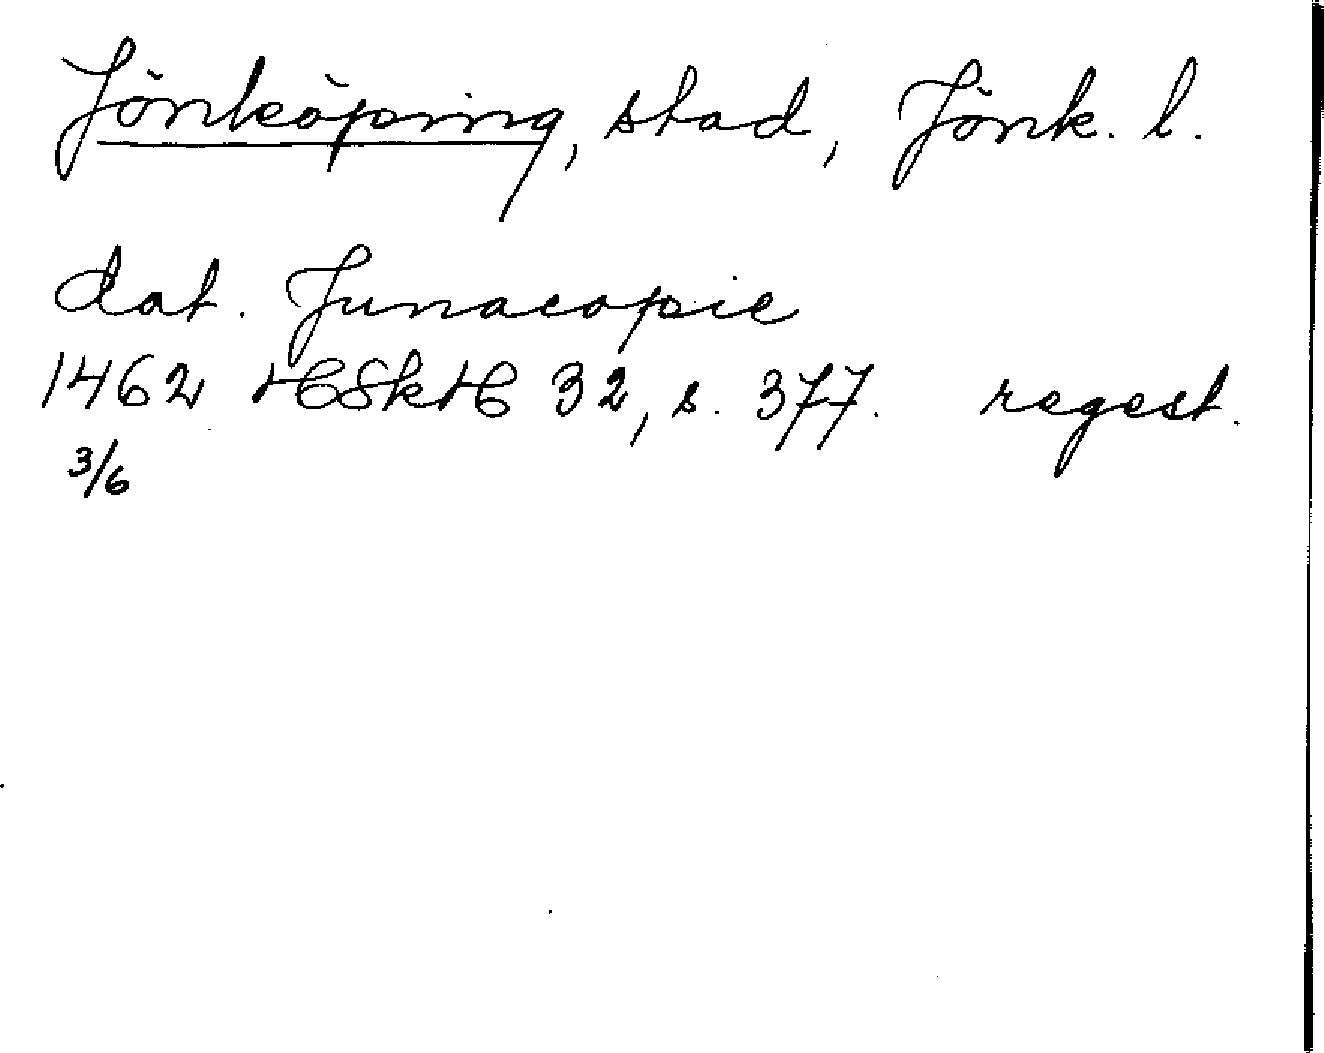 Jönköping, stad, Jönk. l.
dat. Junacopie
1462 HSkH 32, s. 377. regest.
3/6